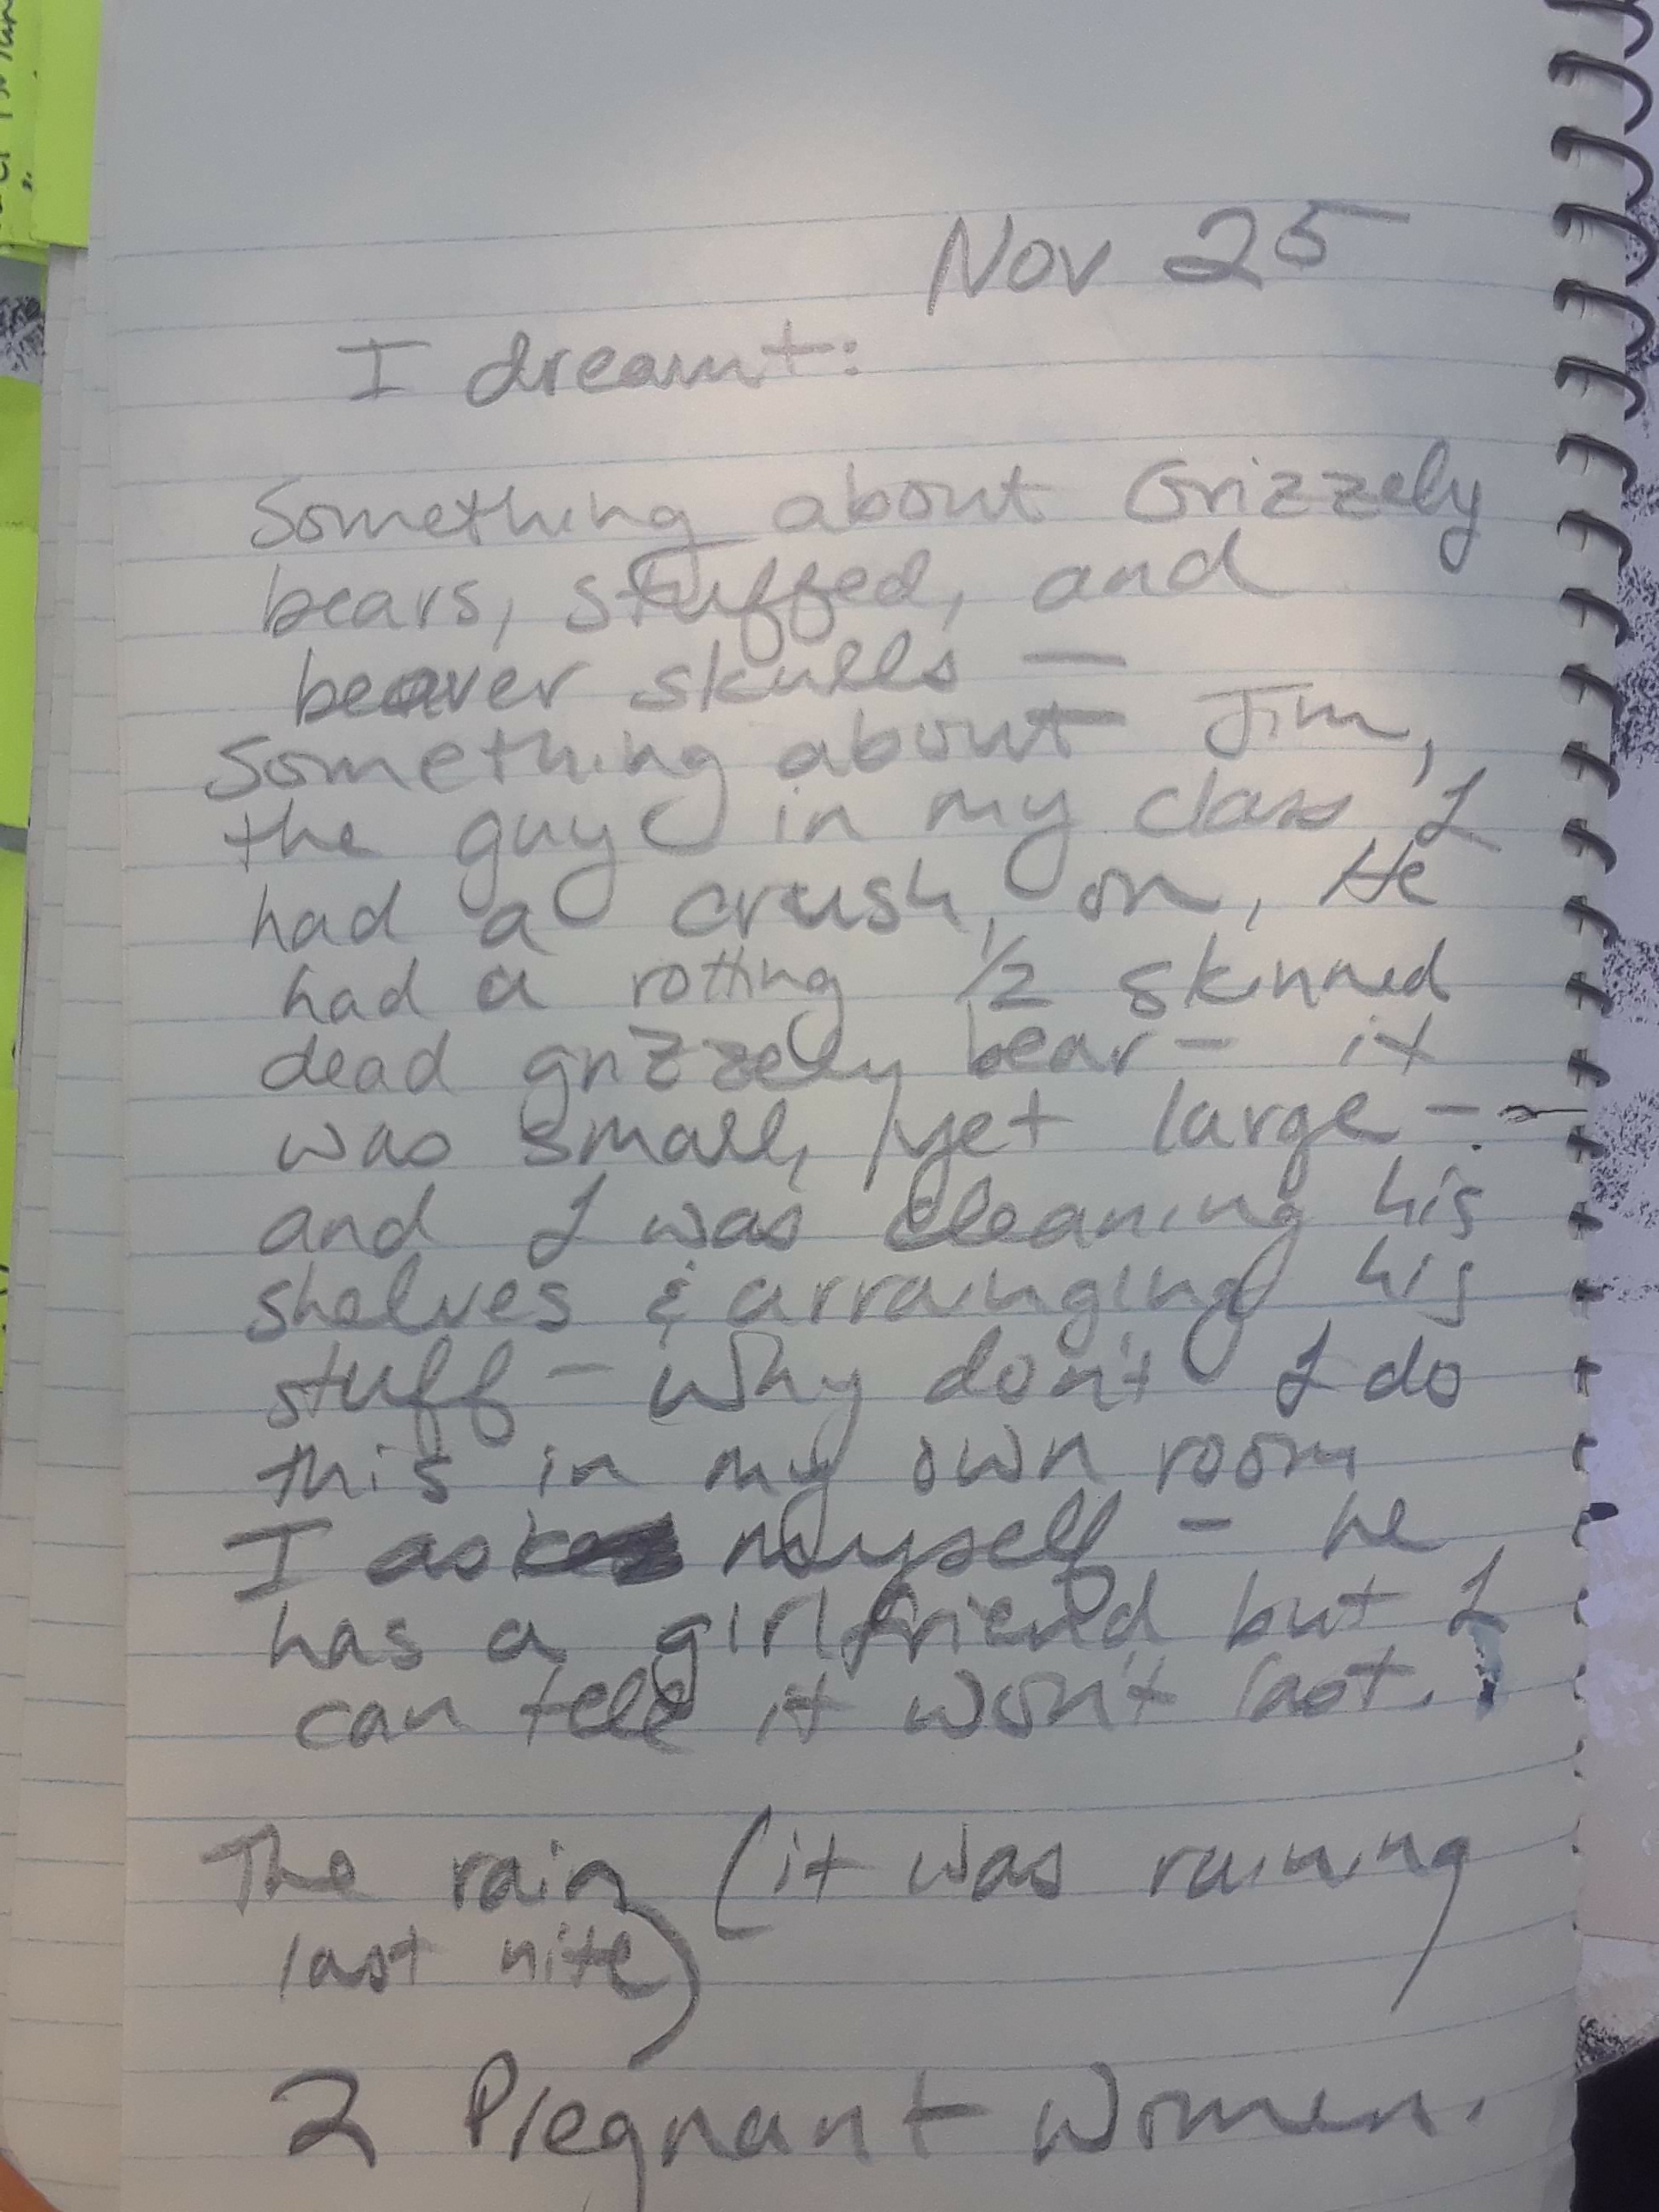 Nov 25
I dreamt:
Something about Grizzely
bears, stuffed, and
beaver skulls —
Something about Jim,
the guy in my class I
had a crush on, He
had a rotting 1/2 skinned
dead grizzely bear - it
was small, yet large -
and I was cleaning his
shelves & arrainging his
stuff - Why don't I do
this in my own room
I ask myself - he
has a girlfriend but I
can tell it won't last.
The rain (it was raining
last nite)
2 Pregnant Women.